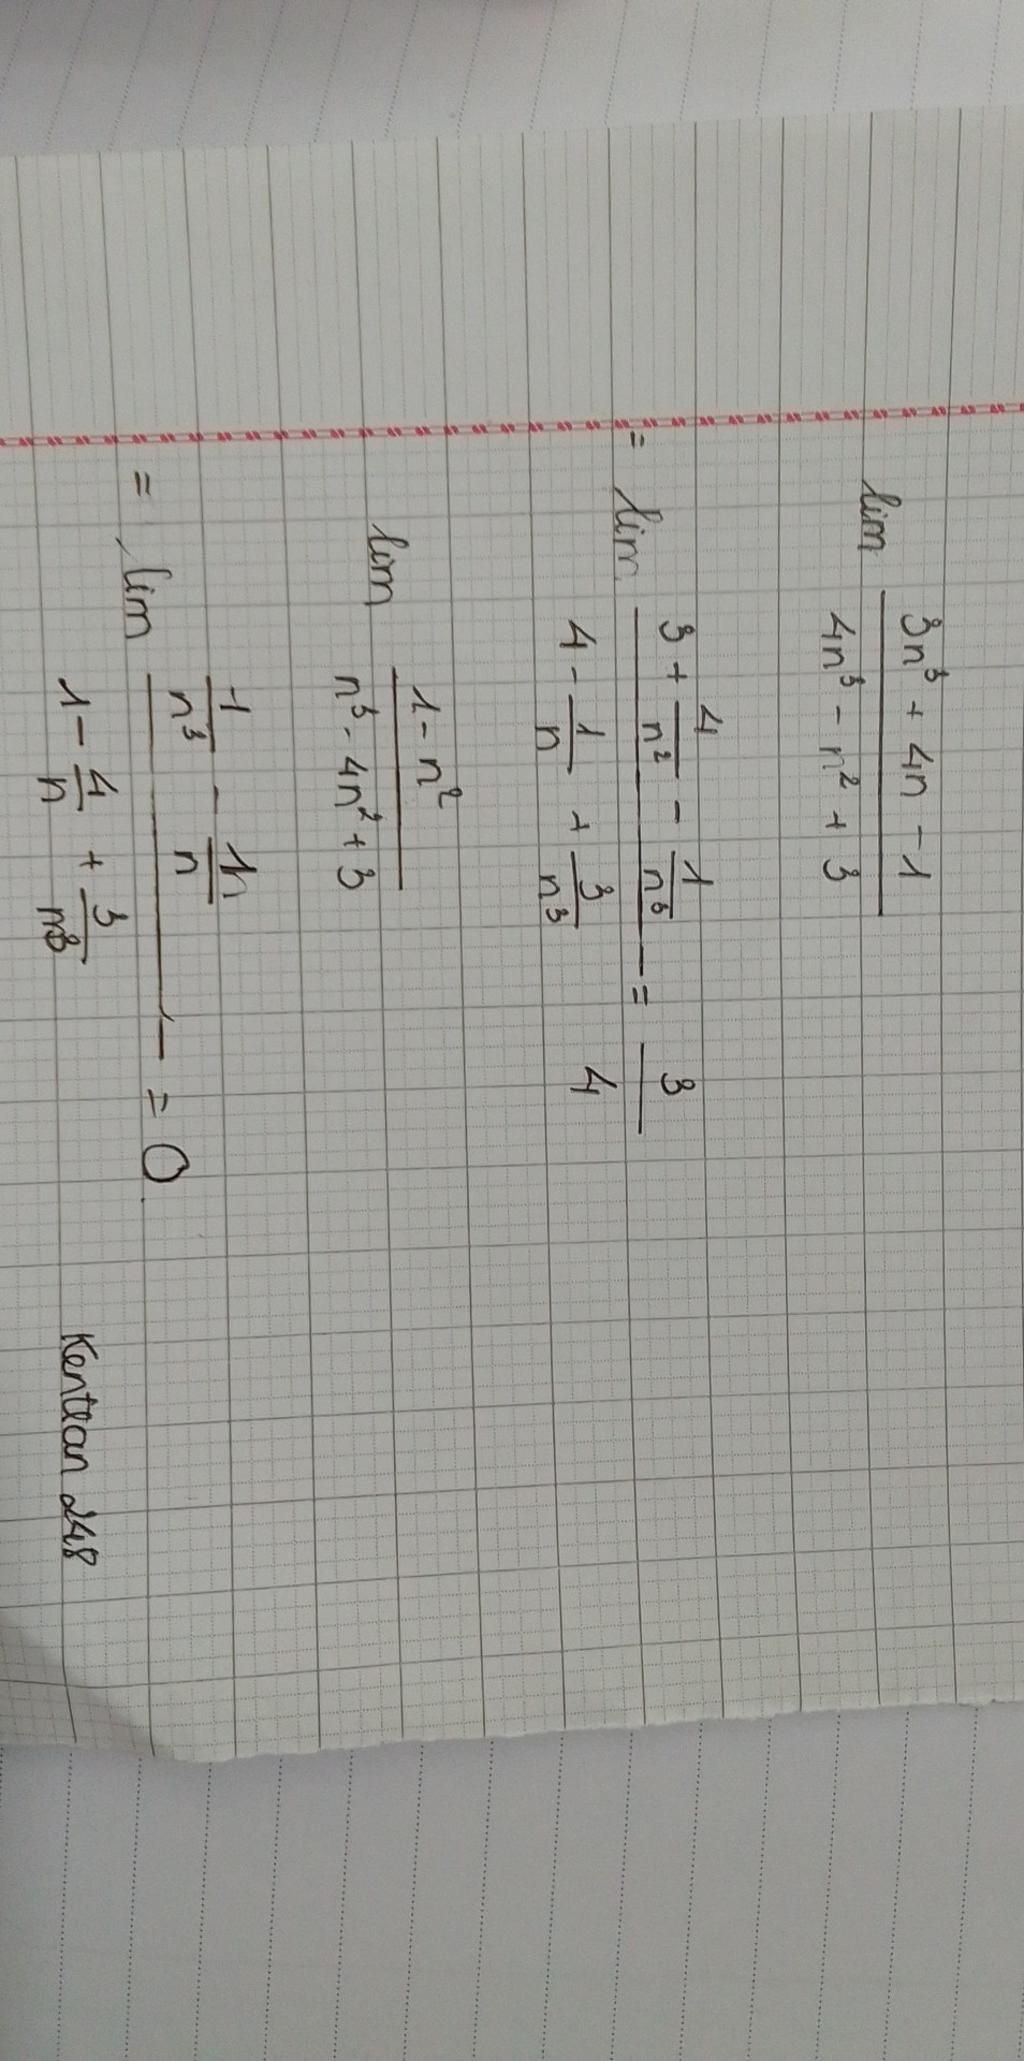 lim (3n³ + 4n - 1)/(4n³ - n² + 3)
= lim (3 + 4/n² - 1/n³)/(4 - 1/n + 3/n³) = 3/4
lim (1 - n²)/(n³ - 4n² + 3)
= lim (1/n³ - 1/n)/(1 - 4/n + 3/n³) = 0